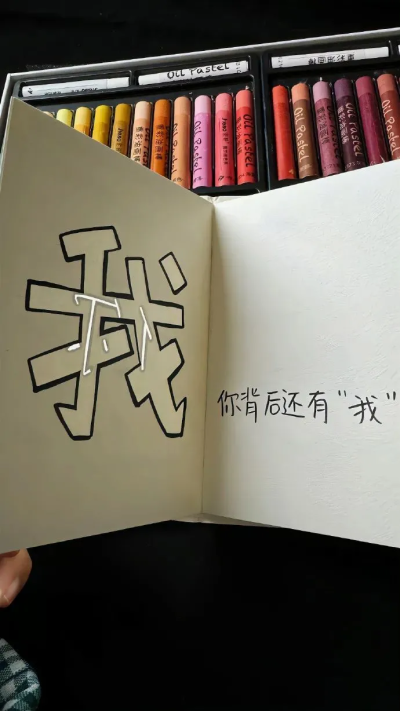 Oil Pastel
Oil Pastel
Oil Pastel
Oil Pastel
我
你背后还有“我”